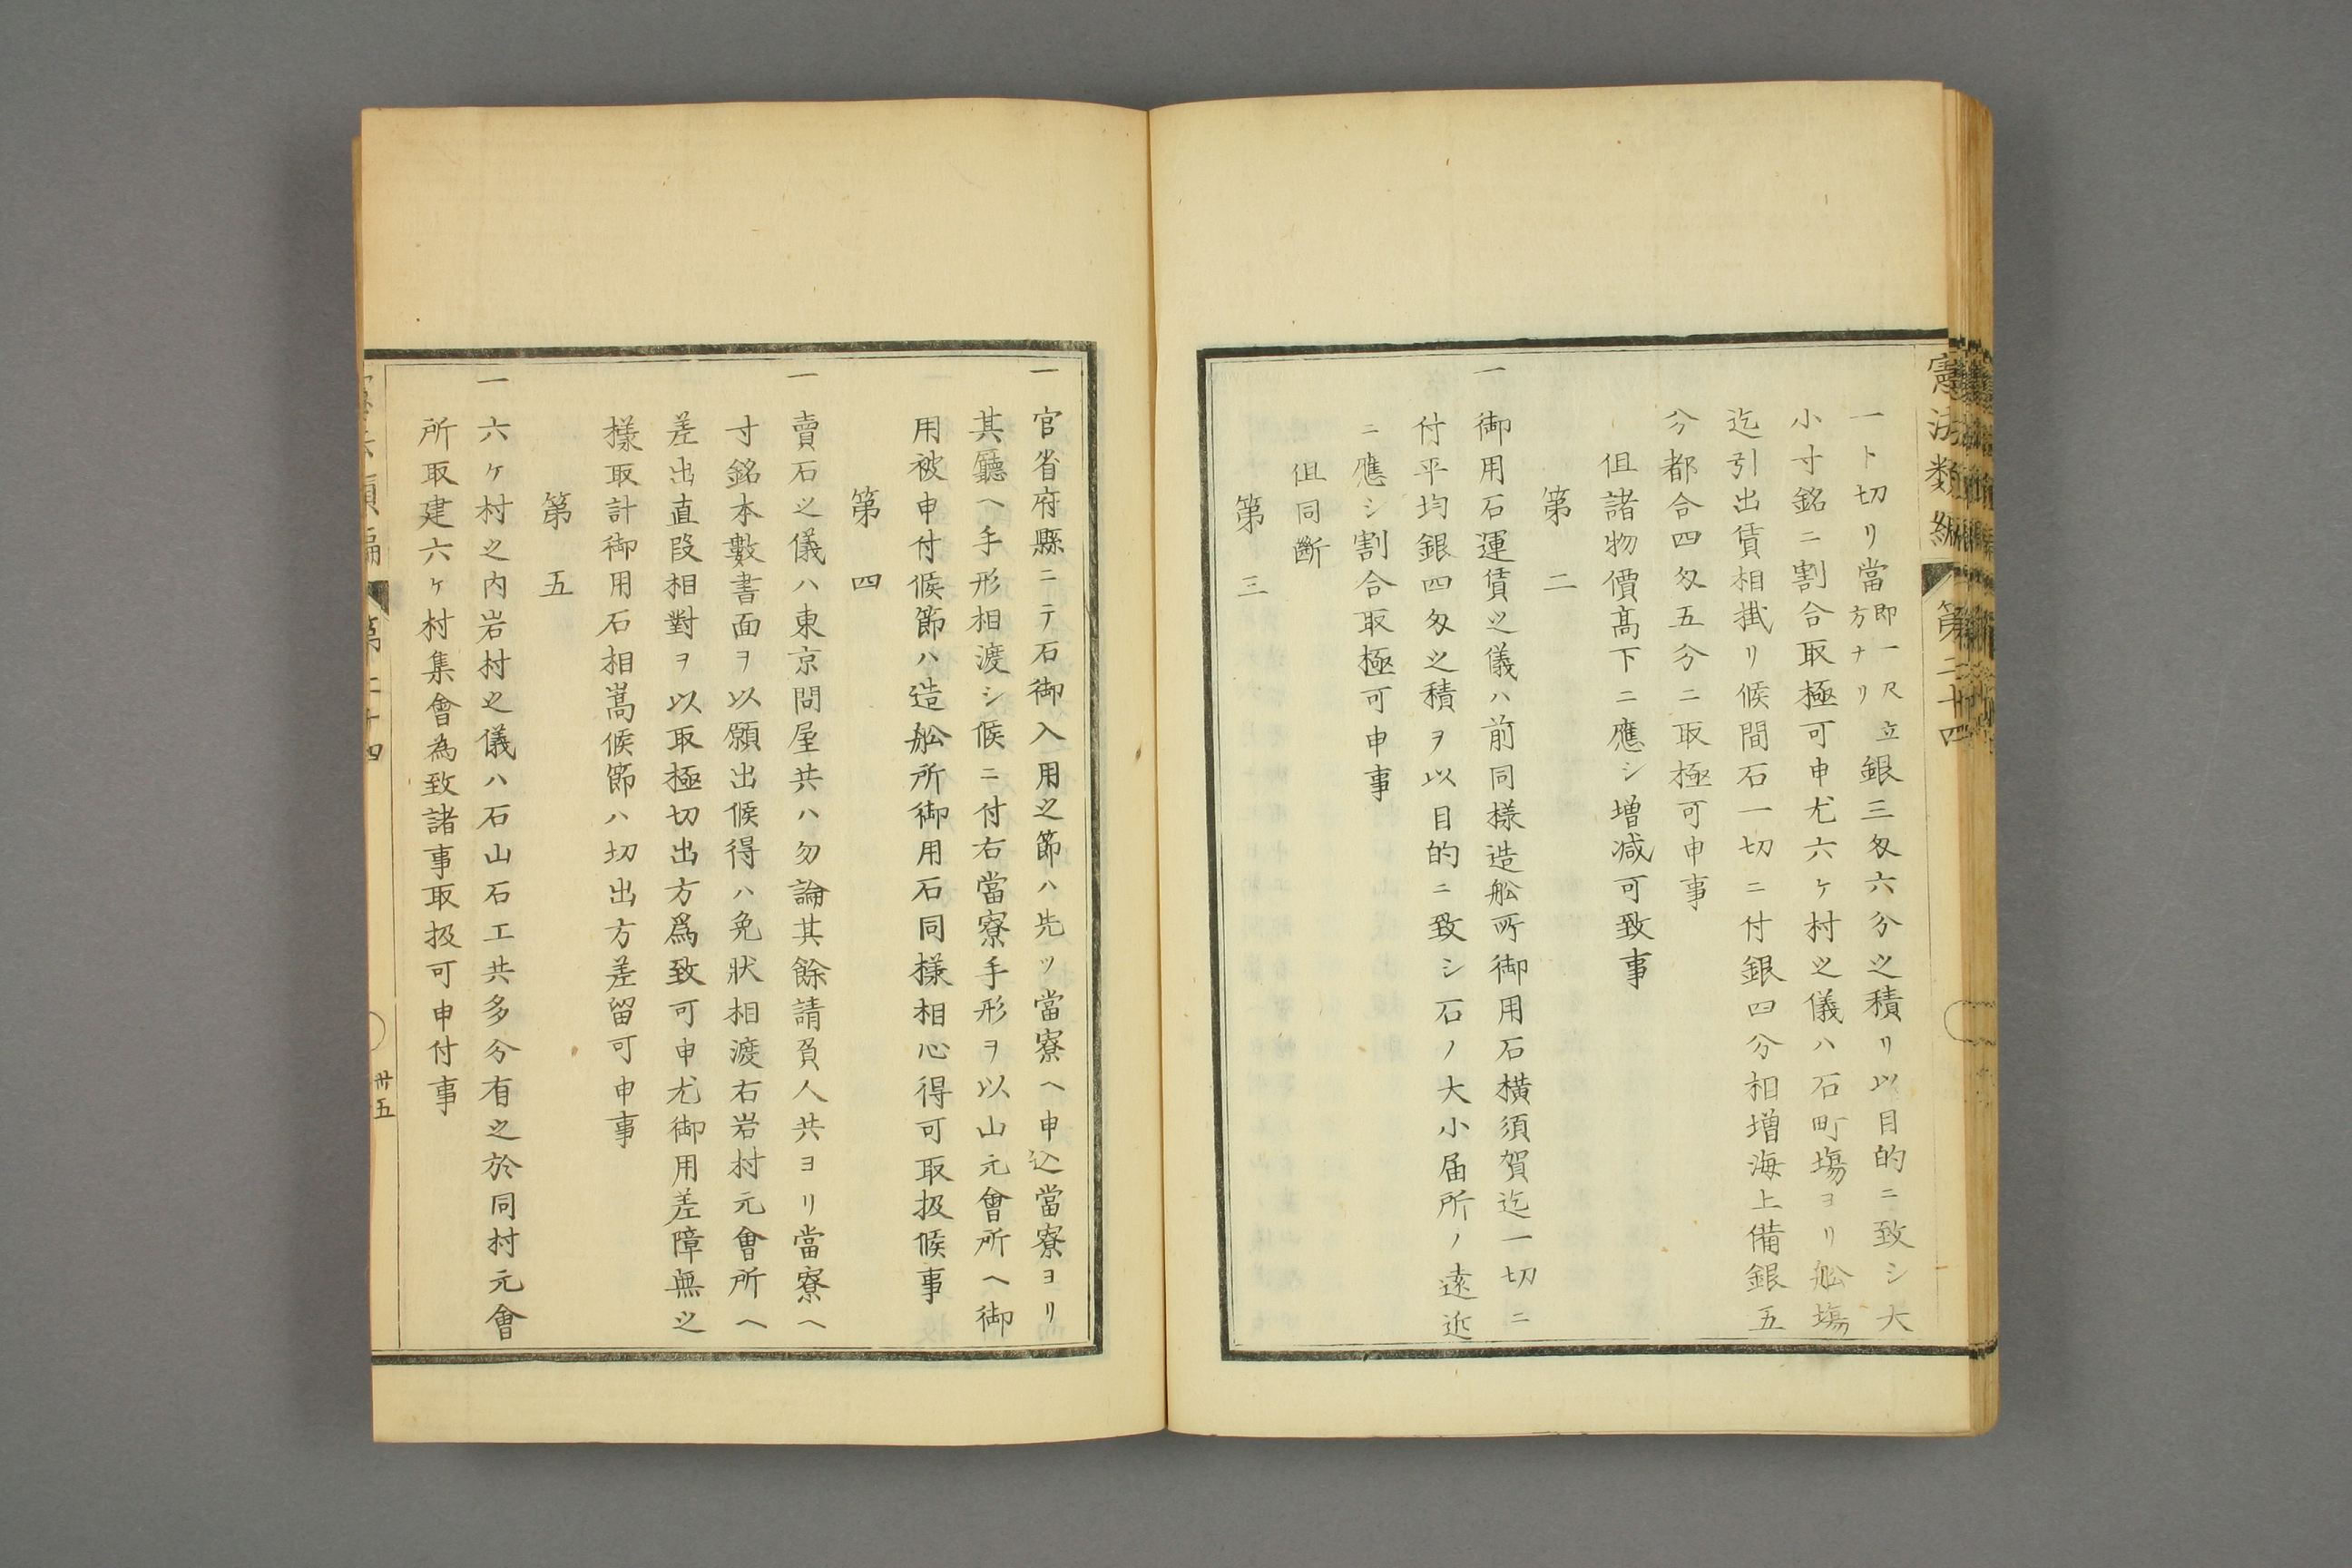 憲法類編　第二十四
一ト切リ當即一尺立方ナリ銀三匁六分之積リ以目的ニ致シ大
小寸銘ニ割合取極可申尤六ケ村之儀ハ石町塲ヨリ舩塲
迄引出賃相掛リ候間石一切ニ付銀四分相増海上備銀五
分都合四匁五分ニ取極可申事
但諸物價髙下ニ應シ増减可致事
第二
一御用石運賃之儀ハ前同様造舩所御用石橫須賀迄一切ニ
付平均銀四匁之積ヲ以目的ニ致シ石ノ大小届所ノ遠近
ニ應シ割合取極可申事
但同斷
第三
一官省府縣ニテ石御入用之節ハ先ツ當寮ヘ申込當寮ヨリ
其廳ヘ手形相渡シ候ニ付右當寮手形ヲ以山元會所ヘ御
用被申付候節ハ造舩所御用石同様相心得可取扱候事
第四
一賣石之儀ハ東京問屋共ハ勿論其餘請負人共ヨリ當寮ヘ
寸銘本數書面ヲ以願出候得ハ免狀相渡右岩村元會所ヘ
差出直段相對ヲ以取極切出方爲致可申尤御用差障無之
樣取計御用石相嵩候節ハ切出方差留可申事
第五
一六ケ村之内岩村之儀ハ石山石工共多分有之於同村元會
所取建六ケ村集會為致諸事取扱可申付事
第二十四
卅五